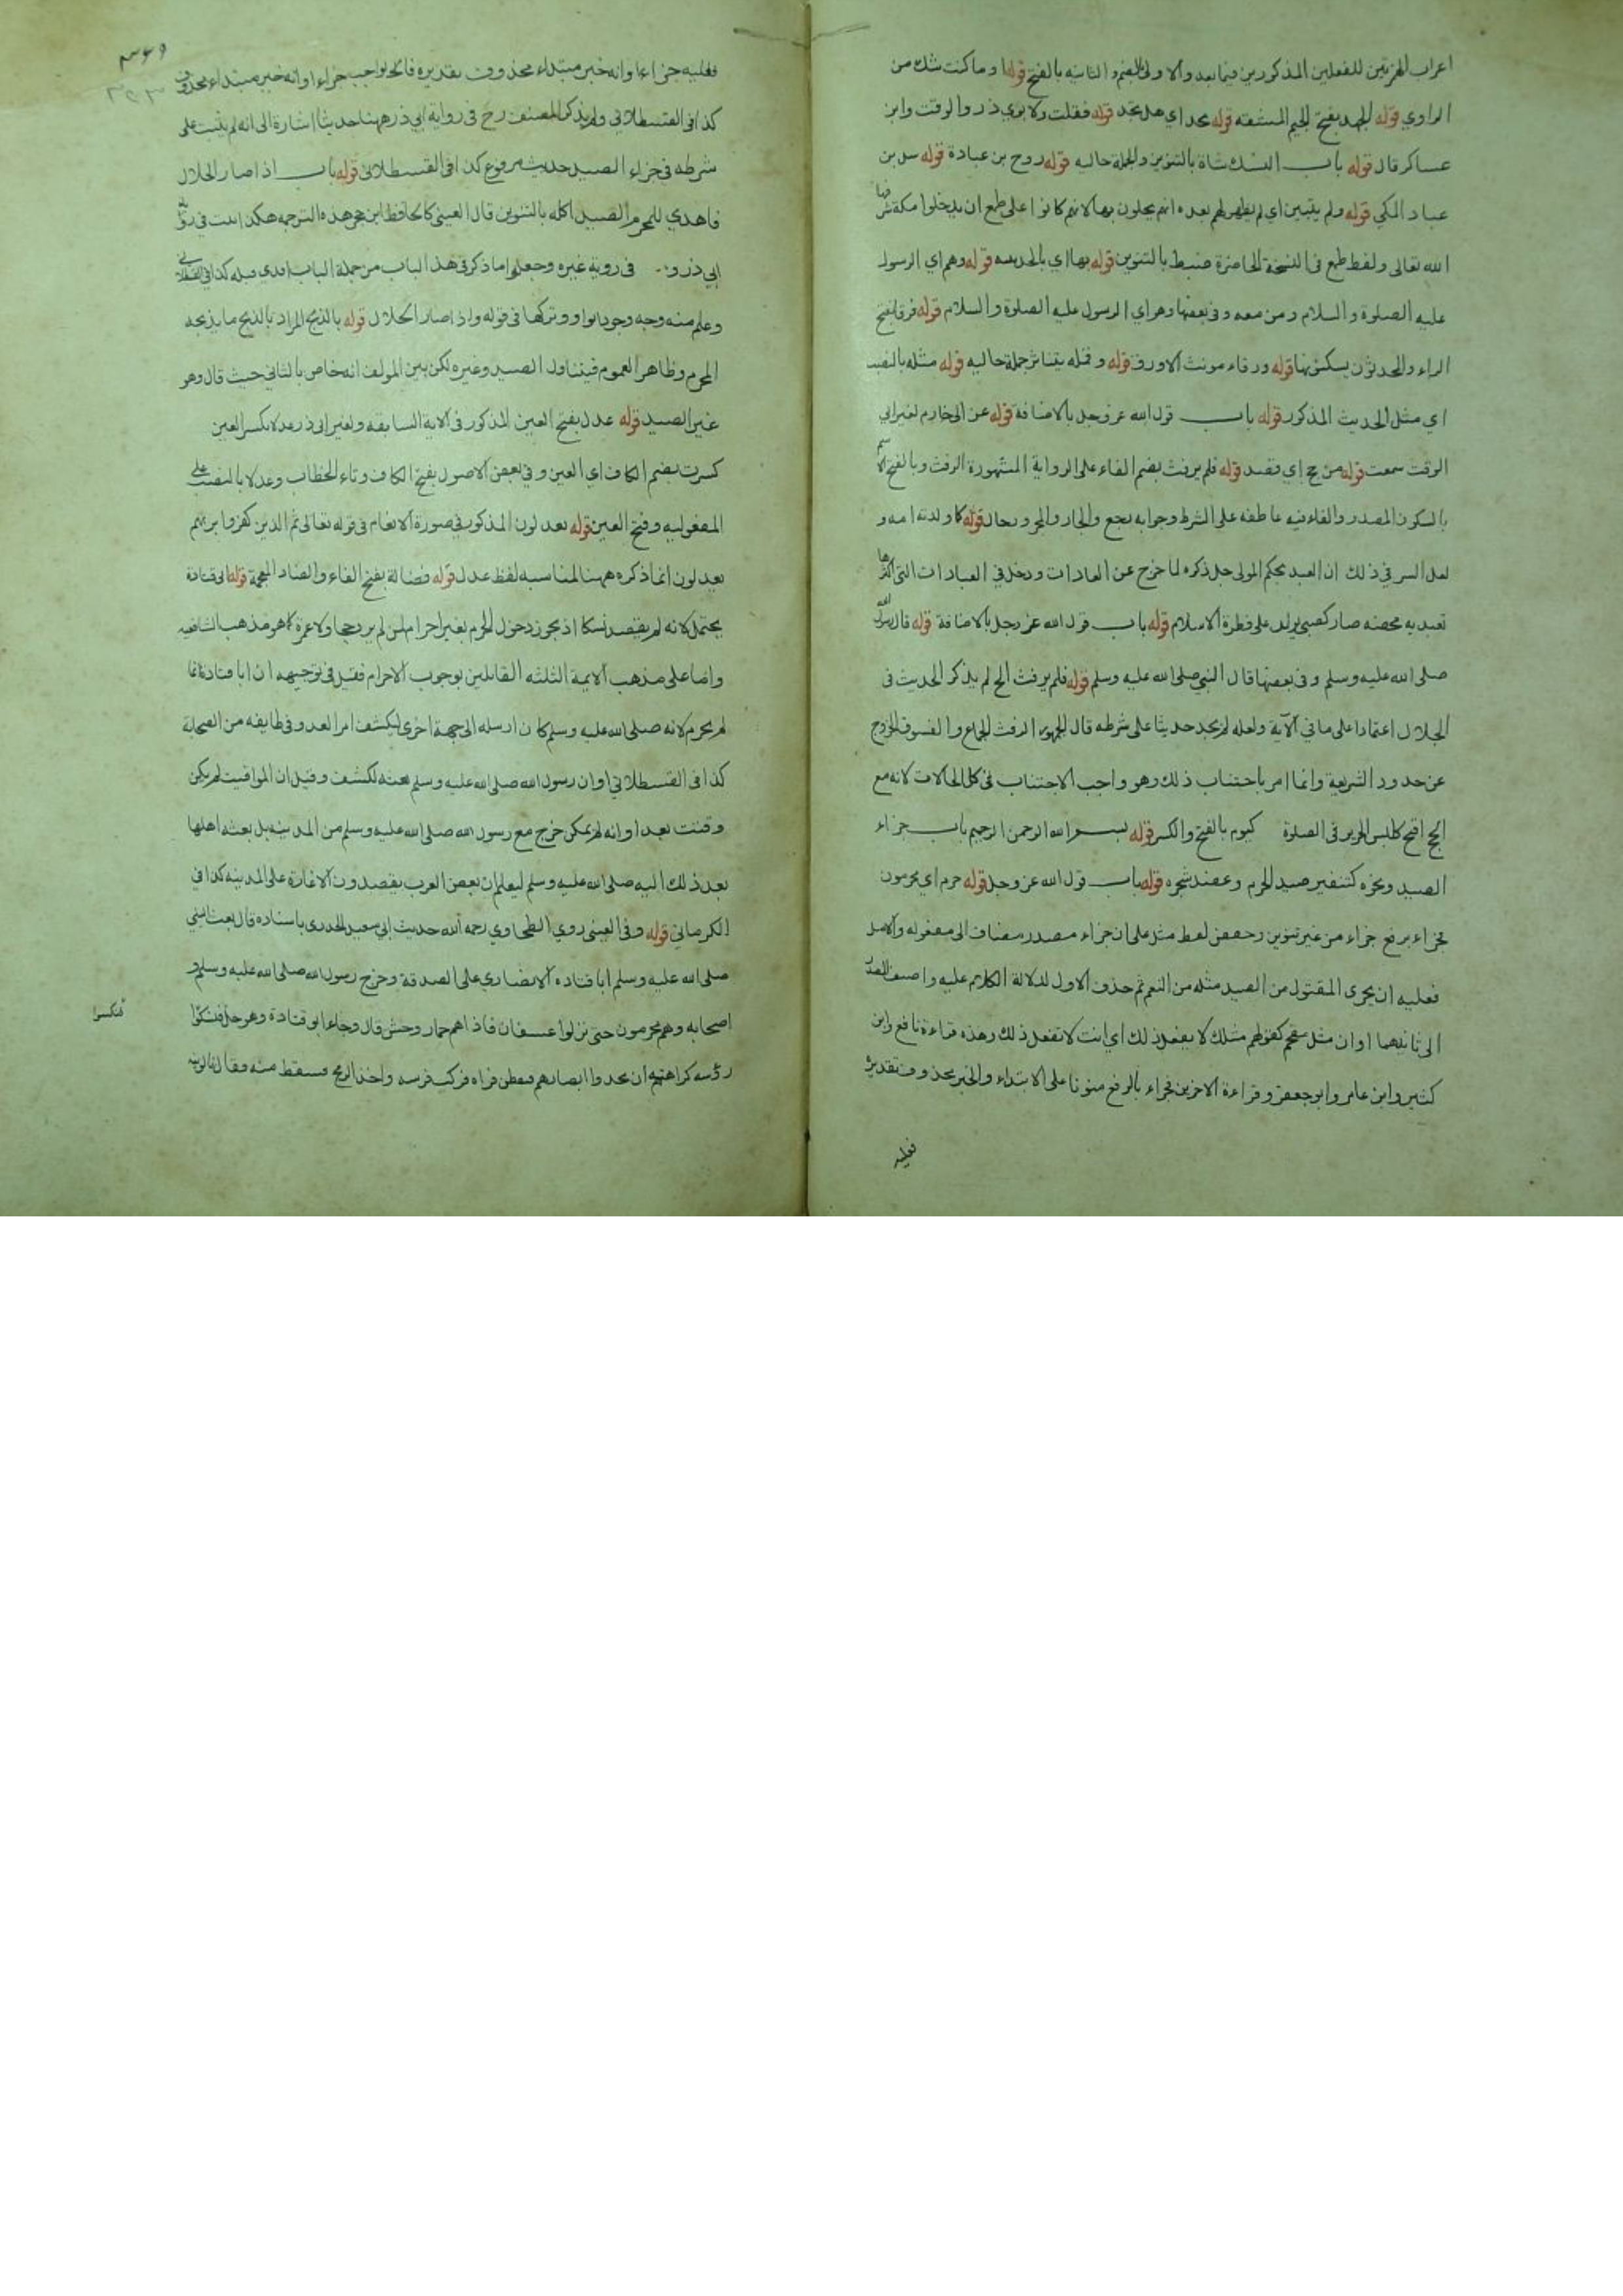 اعراب الهمزتين للفعلين المذكورين فيما بعد والاولى بالضم والثانية بالفتح قوله او ما كنت شك من
الراوي قوله الجهد بفتح الجيم المشقه قوله تجد اي هل تجد قوله فقلت ولابوي ذر والوقت وابن
عساكر قال قوله باب النسك شاة بالتنوين والجملة حاليه قوله روح بن عبادة قوله شبل بن
عباد المكي قوله ولم يتبين اي لم يظهر لهم بعده انهم يحلون بها لانهم كانوا على طمع ان يدخلوا مكة
الله تعالى ولفظ طمع في النسخة الحاضرة ضبط بالتنوين قوله بها اي بالحديبيه قوله وهم اي الرسول
عليه الصلوة والسلام ومن معه وفي بعضها وهو اي الرسول عليه الصلوة والسلام قوله فرقا بفتح
الراء والمحدثون يسكنونها قوله ورقاء مونث الاورق قوله وقمله يتناثر جملة حاليه قوله مثله بالنصب
اي مثل الحديث المذكور قوله باب قول الله عز وجل بالاضافة قوله عن ابي حازم لغير ابي
الوقت سمعت قوله من حج اي قصد قوله فلم يرفث بضم الفاء على الرواية المشهورة الرفث وبالفتح الاسم
بالسكون المصدر والفاء فيه عاطفه على الشرط وجوابه رجع والجار والمجرور حال قوله كما ولدته امه و
لعل السر في ذلك ان العبد بحكم المولى جل ذكره لما خرج عن العادات ودخل في العبادات التي اكثرها
تعبديه محضه صار كصبي يولد على فطرة الاسلام قوله باب قول الله عز وجل بالاضافة قوله قال رسول الله
صلى الله عليه وسلم وفي بعضها قال النبي صلى الله عليه وسلم قوله فلم يرفث الخ لم يذكر الحديث في
الجلال اعتمادا على ما في الآية ولعله لم يجد حديثا على شرطه قال الجمهور الرفث الجماع والفسوق الخروج
عن حدود الشريعة وانما امر باجتناب ذلك وهو واجب الاجتناب في كل الحالات لانه مع
الحج اقبح كلبس الحرير في الصلوة كيوم بالفتح والكسر قوله بسم الله الرحمن الرحيم باب جزاء
الصيد ونحوه كتنفير صيد الحرم وعضد شجره قوله باب قول الله عز وجل قوله حرم اي محرمون
فجزاء برفع جزاء من غير تنوين وخفض لفظ مثل على ان جزاء مصدر مضاف الى مفعوله والاصل
فعليه ان يجزي المقتول من الصيد مثله من النعم ثم حذف الاول لدلالة الكلام عليه واضيف المصدر
الى ثانيهما او ان مثل مقحم كقولهم مثلك لا يفعل ذلك اي انت لا تفعل ذلك وهذه قراءة نافع وابن
كثير وابن عامر وابو جعفر وقراءة الاخرين فجزاء بالرفع منونا على الابتداء والخبر محذوف تقديره
فعليه
٣٤٩
فعليه جزاء او انه خبر مبتداء محذوف تقديره فالواجب جزاء او انه خبر مبتداء محذوف
كذا في القسطلاني ولم يذكر المصنف رح في رواية ابي ذر ههنا حديثا اشارة الى انه لم يثبت على
شرطه في جزاء الصيد حديث مرفوع كذا في القسطلاني قوله باب اذا صار الحلال
فاهدي للمحرم الصيد اكله بالتنوين قال العيني كالحافظ ابن حجر هذه الترجمه هكذا ثبتت في رواية
ابي ذر و في رواية غيره وجعلوا ما ذكر في هذا الباب من جملة الباب الذي قبله كذا في القسطلاني
وعلم منه وجه وجود الواو وتركها في قوله واذا صار الحلال قوله بالذبح المراد بالذبح ما يذبحه
المحرم وظاهر العموم فيتناول الصيد وغيره لكن بين المولف انه خاص بالثاني حيث قال وهو
غير الصيد قوله عدل بفتح العين المذكور في الاية السابقه ولغير ابي ذر عدلا بكسر العين
كسرت بضم الكاف اي العين وفي بعض الاصول بفتح الكاف وتاء الخطاب وعدلا بالنصب على
المفعوليه وفتح العين قوله يعدلون المذكور في صورة الانعام في قوله تعالى ثم الذين كفروا بربهم
يعدلون انما ذكره ههنا لمناسبه لفظ عدل قوله فضالة بفتح الفاء والضاد المعجمة قوله ابي قتادة
يحتمل لانه لم يقصد نسكا اذ يجوز دخول الحرم بغير احرام لمن لم يرد حجا ولا عمرة كما هو مذهب الشافعيه
واما على مذهب الايمة الثلثه القايلين بوجوب الاحرام فقيل في توجيهه ان ابا قتادة انما
لم يحرم لانه صلى الله عليه وسلم كان ارسله الى جهة اخرى ليكشف امر العدو في طايفه من الصحابة
كذا في القسطلاني او ان رسول الله صلى الله عليه وسلم بعثه لكشف وقيل ان المواقيت لم يكن
وقتت بعد او انه لم يكن خرج مع رسول الله صلى الله عليه وسلم من المدينه بل بعثه اهلها
بعد ذلك اليه صلى الله عليه وسلم ليعلم ان بعض العرب يقصدون الاغارة على المدينه كذا في
الكرماني قوله وفي العيني روي الطحاوي رحمه الله حديث ابي سعيد الخدري باسناده قال بعث النبي
صلى الله عليه وسلم ابا قتاده الانصاري على الصدقة وخرج رسول الله صلى الله عليه وسلم و
اصحابه وهم محرمون حتى نزلوا عسفان فاذا هم بحمار وحش قال وجاء ابو قتادة وهو حل فنكسوا
فنكسوا
رؤسهم كراهية ان يحدوا ابصارهم ففطن فراه فركب فرسه واخذ الرمح فسقط منه فقال ناولونيه